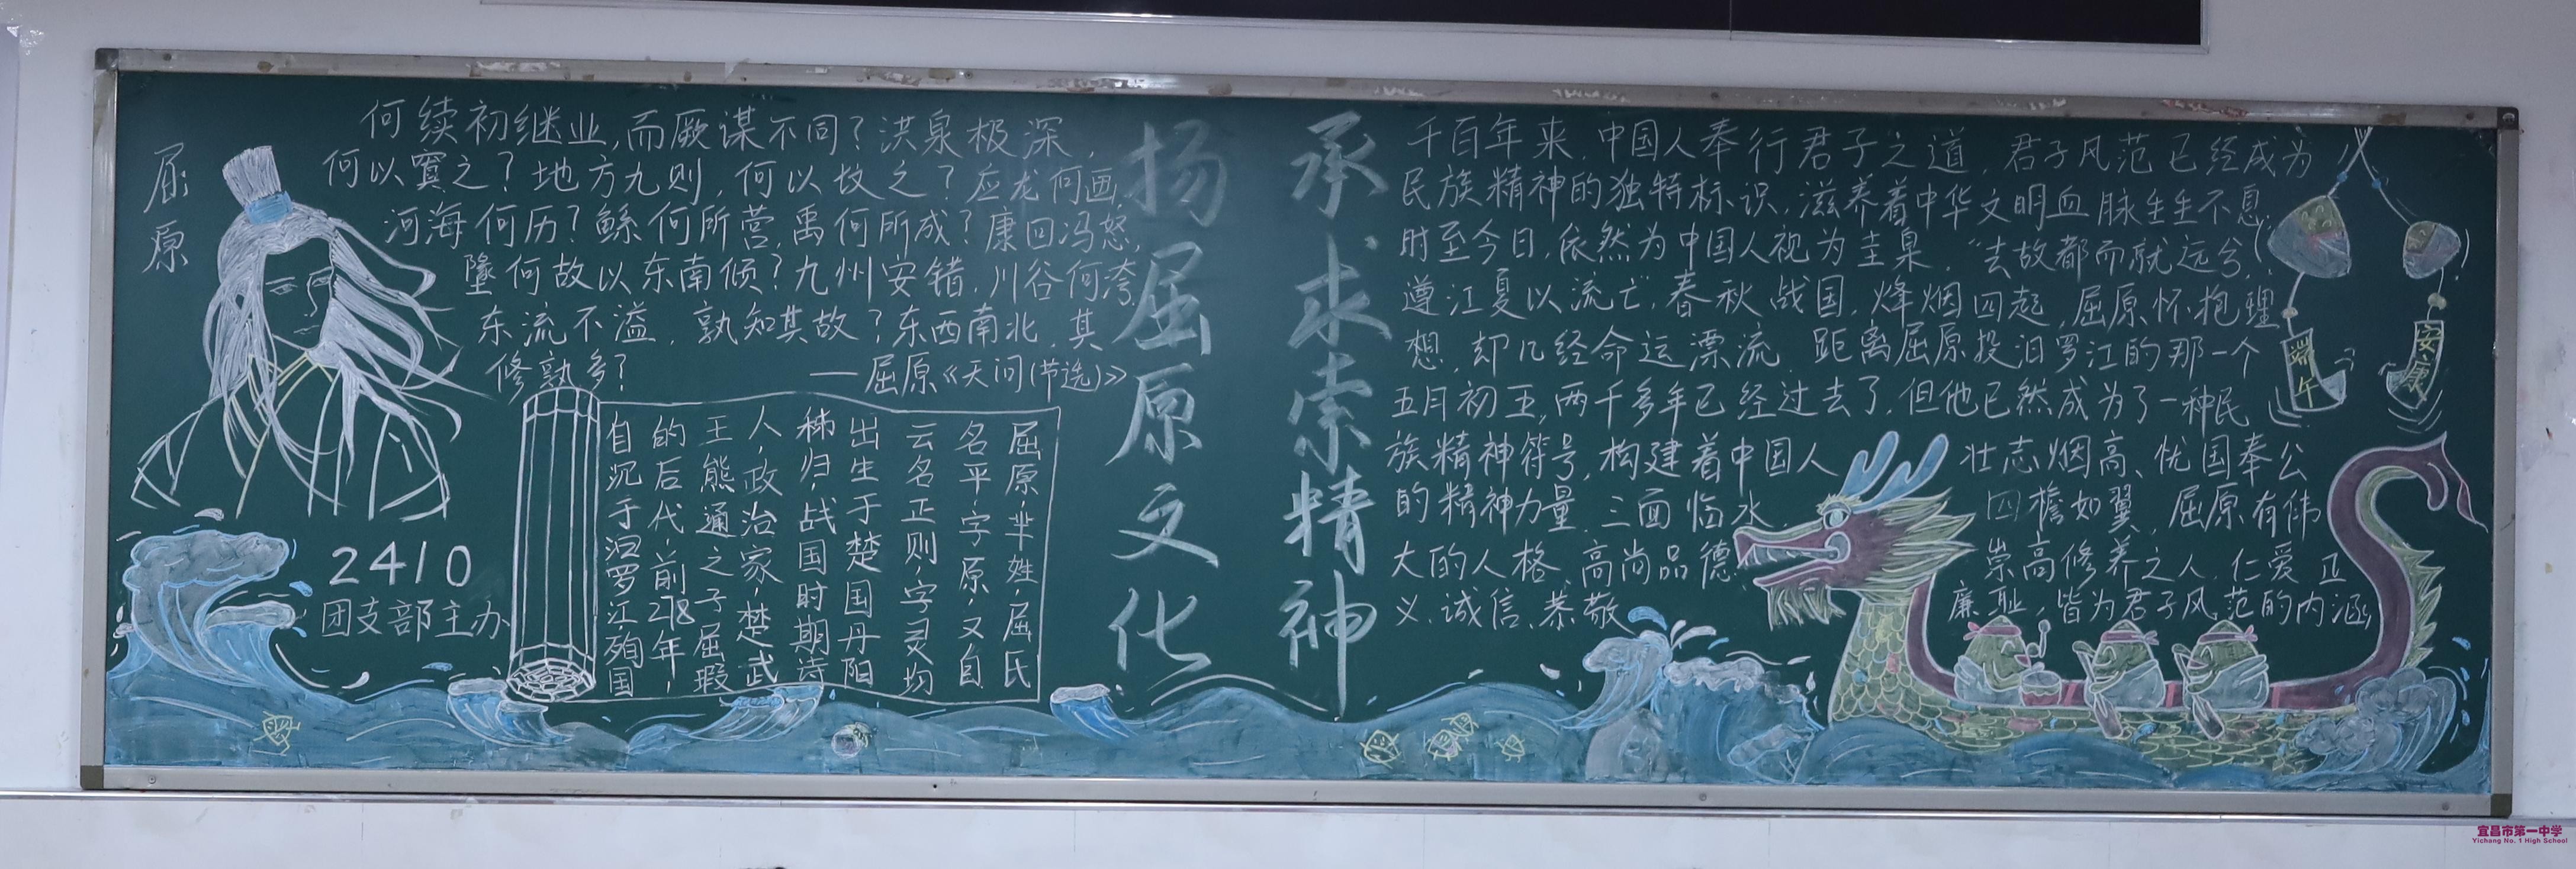 屈原
何续初继业,而厥谋不同?洪泉极深,
何以窴之?地方九则,何以坟之?应龙何画,
河海何历?鲧何所营,禹何所成?康回冯怒,
墬何故以东南倾?九州安错,川谷何洿,
东流不溢,孰知其故?东西南北,其
修孰多?
——屈原《天问(节选)》
2410
团支部主办
屈原,芈姓,屈氏
名平,字原,又自
云名正则,字灵均
出生于楚国丹阳
秭归,战国时期诗
人,政治家,楚武
王熊通之子屈瑕
的后代,前278年,
自沉于汨罗江殉国
扬屈原文化
承求索精神
千百年来,中国人奉行君子之道,君子风范已经成为
民族精神的独特标识,滋养着中华文明血脉生生不息,
时至今日,依然为中国人视为圭臬,“去故都而就远兮,
遵江夏以流亡,春秋战国,烽烟四起,屈原怀抱理
想,却几经命运漂流,距离屈原投汨罗江的那一个
五月初五,两千多年已经过去了,但他已然成为了一种民
族精神符号,构建着中国人 壮志烟高、忧国奉公
的精神力量,三面临水, 四檐如翼,屈原有伟
大的人格,高尚品德 崇高修养之人,仁爱、正
义、诚信、恭敬 廉耻,皆为君子风范的内涵,
端午
安康
宜昌市第一中学
Yichang No. 1 High School